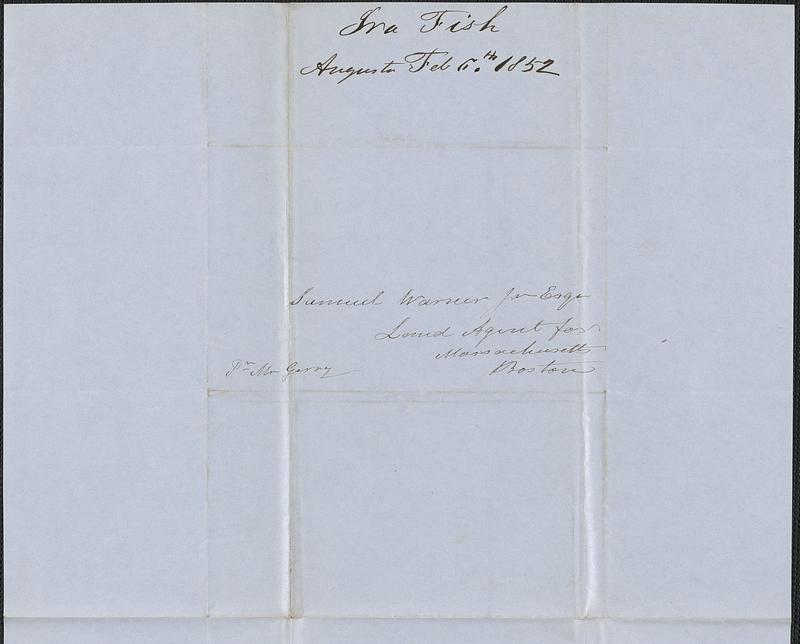 Ira Fish
Augusta Feb 6.th 1852
Samuel Warner Jr Esqr
Land Agent for
Massachusetts
Boston
Pr Mr Gerry